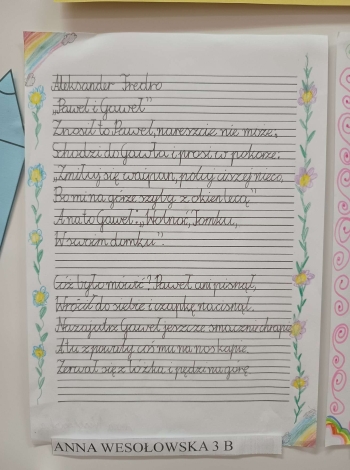 Aleksander Fredro
„Paweł i Gaweł"
Znosił to Paweł, nareszcie nie może,
Schodzi do Gawła i prosi w pokorze:
„Zmiłuj się waćpan, poluj ciszej nieco,
Bo mi na górze szyby z okien lecą."
A na to Gaweł: „Wolnoć, Tomku,
W swoim domku".
Cóż było mówić? Paweł ani pisnął,
Wrócił do siebie i czapkę nacisnął.
Nazajutrz Gaweł jeszcze smacznie chrapie,
A tu z powały coś mu na nos kapie.
Zerwał się z łóżka i pędzi na górę
ANNA WESOŁOWSKA 3 B